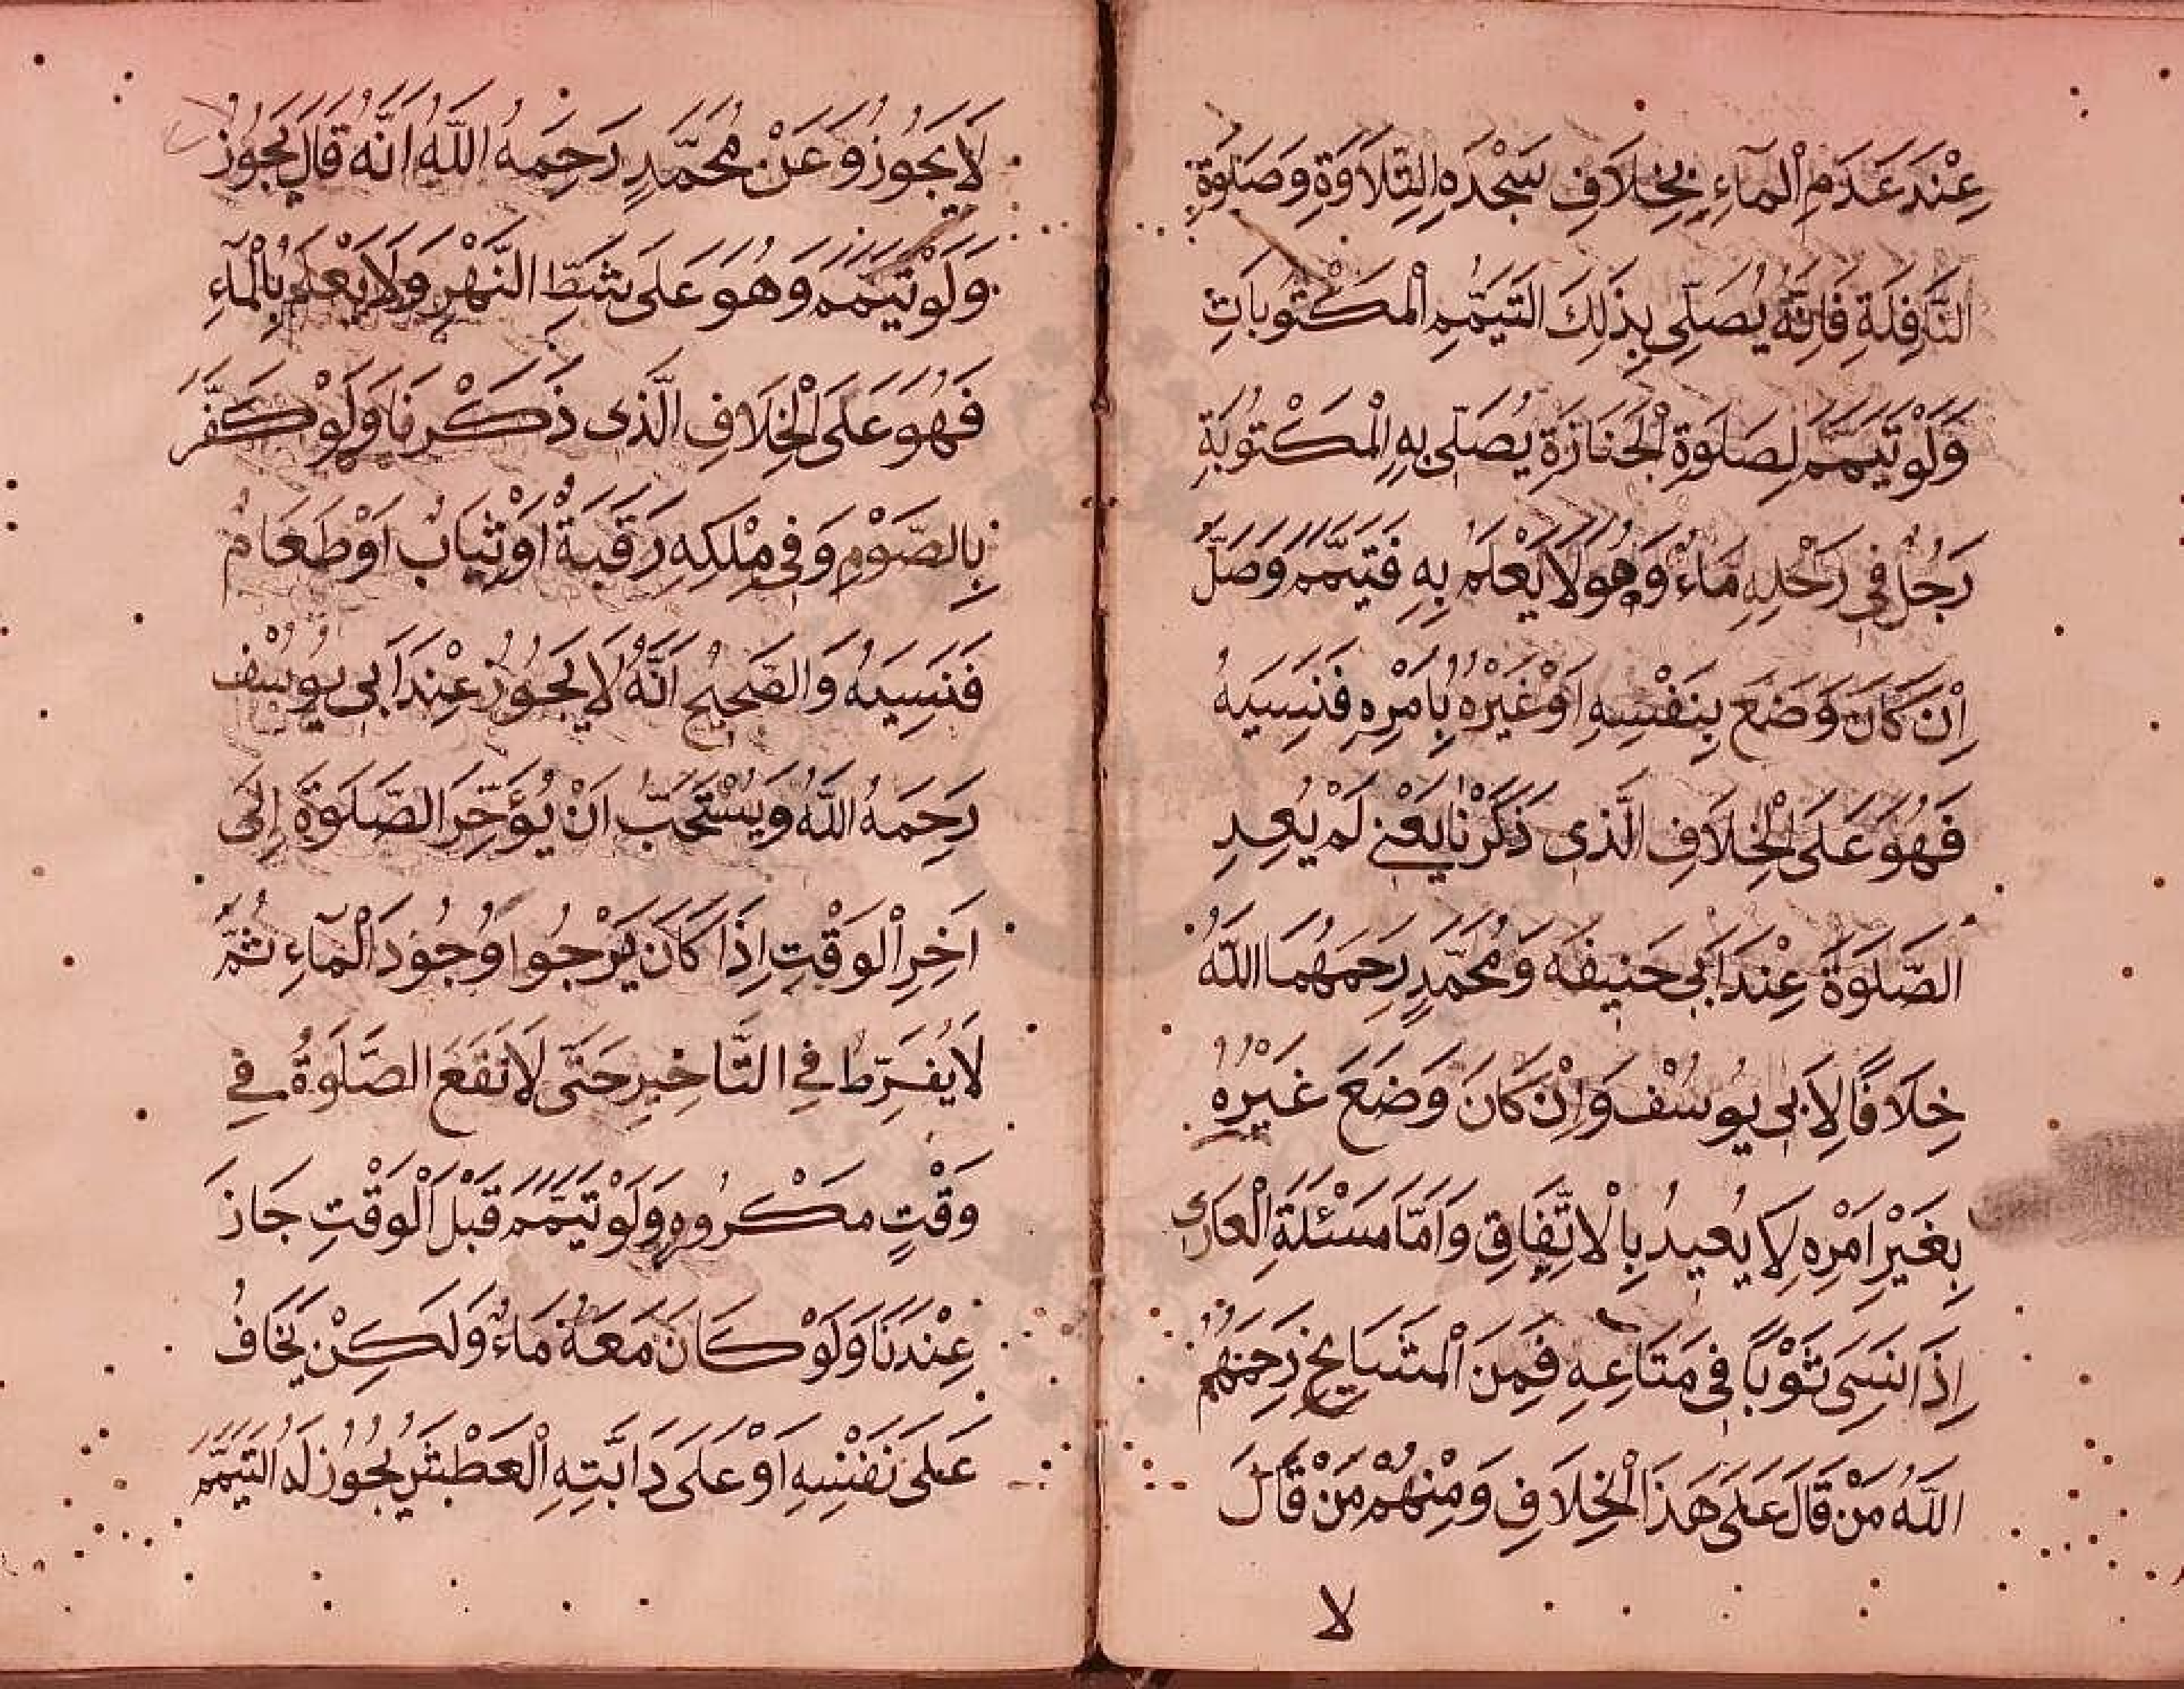 عِنْدَ عَدَمِ الْمَآءِ بِخِلَافِ سَجْدَهِ التِّلَاوَةِ وَصَلٰوةِ
النَّافِلَةِ فَاِنَّهُ يُصَلِّى بِذَلِكَ التَّيَمُّمِ الْمَكْتُوبَاتِ
وَلَوْ تَيَمَّمَ لِصَلَوةِ الْجَنَازَةِ يُصَلِّى بِهِ الْمَكْتُوبَةِ
رَجُلٌ فِى رَحْلِهِ مَاءٌ وَهُوَ لَا يَعْلَمُ بِهِ فَتَيَمَّمَ وَصَلَّ
اِنْ كَانَ وَضَعَ بِنَفْسِهِ اَوْ غَيْرُهُ بِاَمْرِهِ فَنَسِيَهُ
فَهُوَ عَلَى الْخِلَافِ الَّذِى ذَكَرْنَا يَعْنِى لَمْ يُعِدِ
الصَّلَوةَ عِنْدَ اَبِى حَنِيفَه وَمُحَمَّدٍ رَحِمَهُمَا اللّٰهُ
خِلَافًا لِاَبِى يُوسُفْ وَاِنْ كَانَ وَضَعَ غَيْرُهُ
بِغَيْرِ اَمْرِهِ لَا يُعِيدُ بِالْاِتِّفَاقِ وَاَمَّا مَسْئَلَةِ الْعَارِى
اِذَا نَسِىَ ثَوْبًا فِى مَتَاعِهِ فَمِنَ الْمَشَايِخِ رَحِمَهُمُ
اللّٰهُ مَنْ قَالَ عَلَى هَذَا الْخِلَافِ وَمِنْهُمْ مَنْ قَالَ
لا
لَا يَجُوزُ وَعَنْ مُحَمَّدٍ رَحِمَهُ اللّٰهُ اَنَّهُ قَالَ يَجُوزُ
وَلَوْ تَيَمَّمَ وَهُوَ عَلَى شَطِّ النَّهْرِ وَلَا يَعْلَمُ بِالْمَآءِ
فَهُوَ عَلَى الْخِلَافِ الَّذِى ذَكَرْنَا وَلَوْ كَفَّرَ
بِالصَّوْمِ وَفِى مِلْكِهِ رَقَبَةٌ اَوْ ثِيَابٌ اَوْ طَعَامٌ
فَنَسِيَهُ وَالصَّحِيحُ اَنَّهُ لَا يَجُوزُ عِنْدَ اَبِى يُوسُف
رَحِمَهُ اللّٰهُ وَيُسْتَحَبُّ اَنْ يُؤَخِّرَ الصَّلَوةَ اِلَى
اَخِرِ الْوَقْتِ اِذَا كَانَ يَرْجُوا وُجُودَ الْمَآءِ ثُمَّ
لَا يُفَرِّطُ فِى التَّاخِيرِ حَتَّى لَا تَقَعَ الصَّلَوةُ فِى
وَقْتٍ مَكْرُوهٍ وَلَوْ تَيَمَّمَ قَبْلَ الْوَقْتِ جَازَ
عِنْدَنَا وَلَوْ كَانَ مَعَهُ مَاءٌ وَلَكِنْ يَخَافُ
عَلَى نَفْسِهِ اَوْ عَلَى دَابَّتِهِ الْعَطْشَ يَجُوزُ لَهُ التَّيَمُّمُ